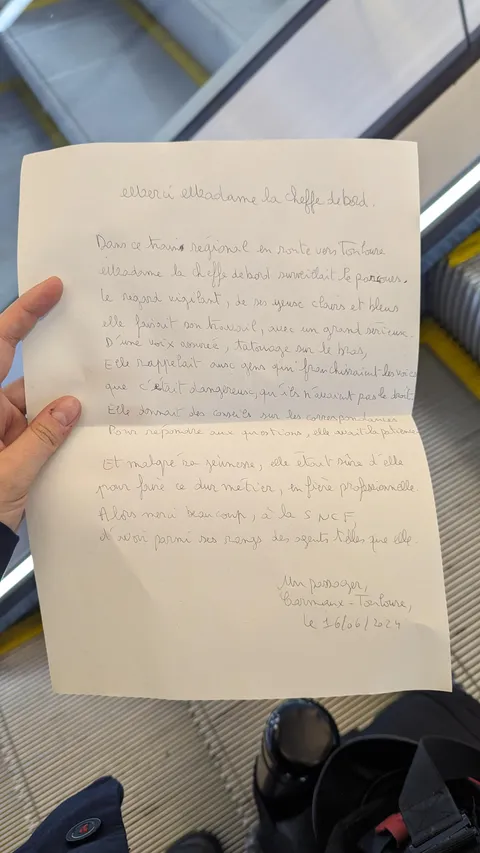 Merci Madame la cheffe de bord.
Dans ce train régional en route vers Toulouse
Madame la cheffe de bord surveillait le parcours.
Le regard vigilant, de ses yeux clairs et bleus
elle faisait son travail, avec un grand sérieux.
D'une voix assurée, tatouage sur le bras,
Elle rappelait aux gens qui franchissaient les voies
que c'était dangereux, qu'ils n'avaient pas le droit.
Elle donnait des conseils sur les correspondances
Pour répondre aux questions, elle avait la patience
Et malgré sa jeunesse, elle était sûre d'elle
pour faire ce dur métier, en fière professionnelle.
Alors merci beaucoup, à la SNCF,
d'avoir parmi ses rangs des agents telles que elle.
Un passager,
Carmaux - Toulouse,
le 16/06/2024